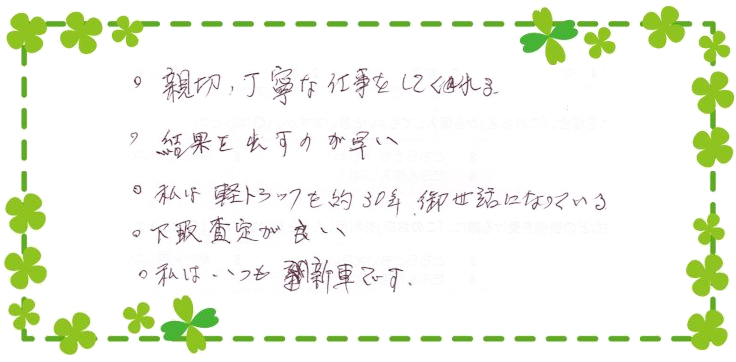 。親切、丁寧な仕事をしてくれる
。結果を出すのが早い
。私は軽トラックを約30年、御世話になっている
。下取査定が良い
。私はいつも新車です。